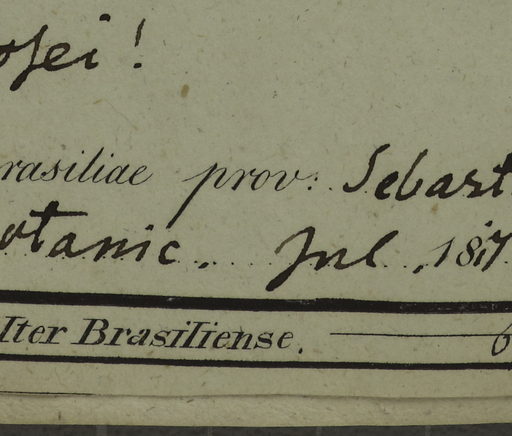 osei!
rasiliae prov: Sebast
otanic. Jul. 1817
Iter Brasiliense. 6